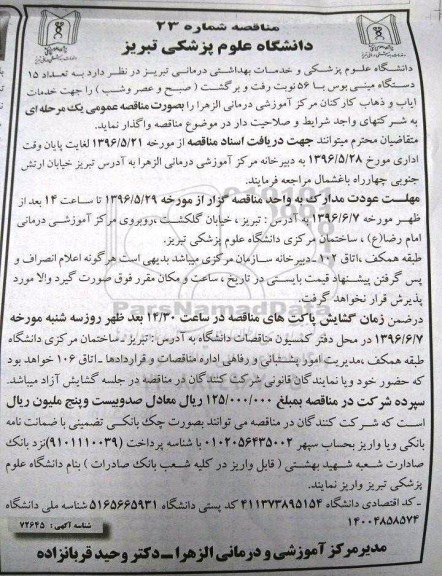 مناقصه شماره ۲۳
دانشگاه علوم پزشکی تبریز
دانشگاه علوم پزشکی و خدمات بهداشتی درمانی تبریز در نظر دارد به تعداد ۱۵
دستگاه مینی بوس با ۵۶ نوبت رفت و برگشت ( صبح و عصر وشب ) را جهت خدمات
ایاب و ذهاب کارکنان مرکز آموزشی درمانی الزهرا را بصورت مناقصه عمومی یک مرحله ای
به شرکتهای واجد شرایط و صلاحیت دار در موضوع مناقصه واگذار نماید.
متقاضیان محترم میتوانند جهت دریافت اسناد مناقصه از مورخه ۱۳۹۶/۵/۲۱ لغایت پایان وقت
اداری مورخ ۱۳۹۶/۵/۲۸ به دبیرخانه مرکز آموزشی درمانی الزهرا به آدرس تبریز خیابان ارتش
جنوبی چهارراه باغشمال مراجعه فرمایند.
مهلت عودت مدارک به واحد مناقصه گزار از مورخه ۱۳۹۶/۵/۲۹ تا ساعت ۱۴ بعد از
ظهر مورخه ۱۳۹۶/۶/۷ به آدرس : تبریز ، خیابان گلگشت ،روبروی مرکز آموزشی درمانی
امام رضا(ع) ، ساختمان مرکزی دانشگاه علوم پزشکی تبریز.
طبقه همکف ،اتاق ۱۰۲ -دبیرخانه سازمان مرکزی میباشد بدیهی است هرگونه اعلام انصراف و
پس گرفتن پیشنهاد قیمت بایستی در تاریخ ، ساعت و مکان مقرر فوق صورت گیرد والا مورد
پذیرش قرار نخواهد گرفت.
درضمن زمان گشایش پاکت های مناقصه در ساعت ۱۴/۳۰ بعد ظهر روزسه شنبه مورخه
۱۳۹۶/۶/۷ در محل دفتر کمسیون مناقصات دانشگاه به آدرس : تبریز ـ ساختمان مرکزی دانشگاه
طبقه همکف ،مدیریت امور پشتیبانی و رفاهی اداره مناقصات و قراردادها ـ اتاق ۱۰۶ خواهد بود
که حضور خود ویا نمایندگان قانونی شرکت کنندگان در مناقصه در جلسه گشایش آزاد میباشد.
سپرده شرکت در مناقصه بمبلغ ۱۲۵/۰۰۰/۰۰۰ ریال معادل صدوبیست و پنج ملیون ریال
است که شرکت کنندگان در مناقصه می توانند بصورت چک بانکی تضمینی با ضمانت نامه
بانکی ویا واریز بحساب سپهر ۰۱۰۲۰۵۶۴۳۵۰۰۲ با شناسه پرداخت (۹۱۰۱۱۱۰۰۳۹)نزد بانک
صادارت شعبه شهید بهشتی ( قابل واریز در کلیه شعب بانک صادرات ) بنام دانشگاه علوم
پزشکی تبریز واریز نمایند.
ـ کد اقتصادی دانشگاه ۴۱۱۳۷۳۸۹۵۱۵۴ کد پستی دانشگاه ۵۱۶۵۶۶۵۹۳۱ شناسه ملی دانشگاه
۱۴۰۰۴۸۵۸۵۷۴
شناسه آگهی : ۷۲۶۴۵
مدیرمرکز آموزشی و درمانی الزهرا ــ دکتر وحید قربانزاده